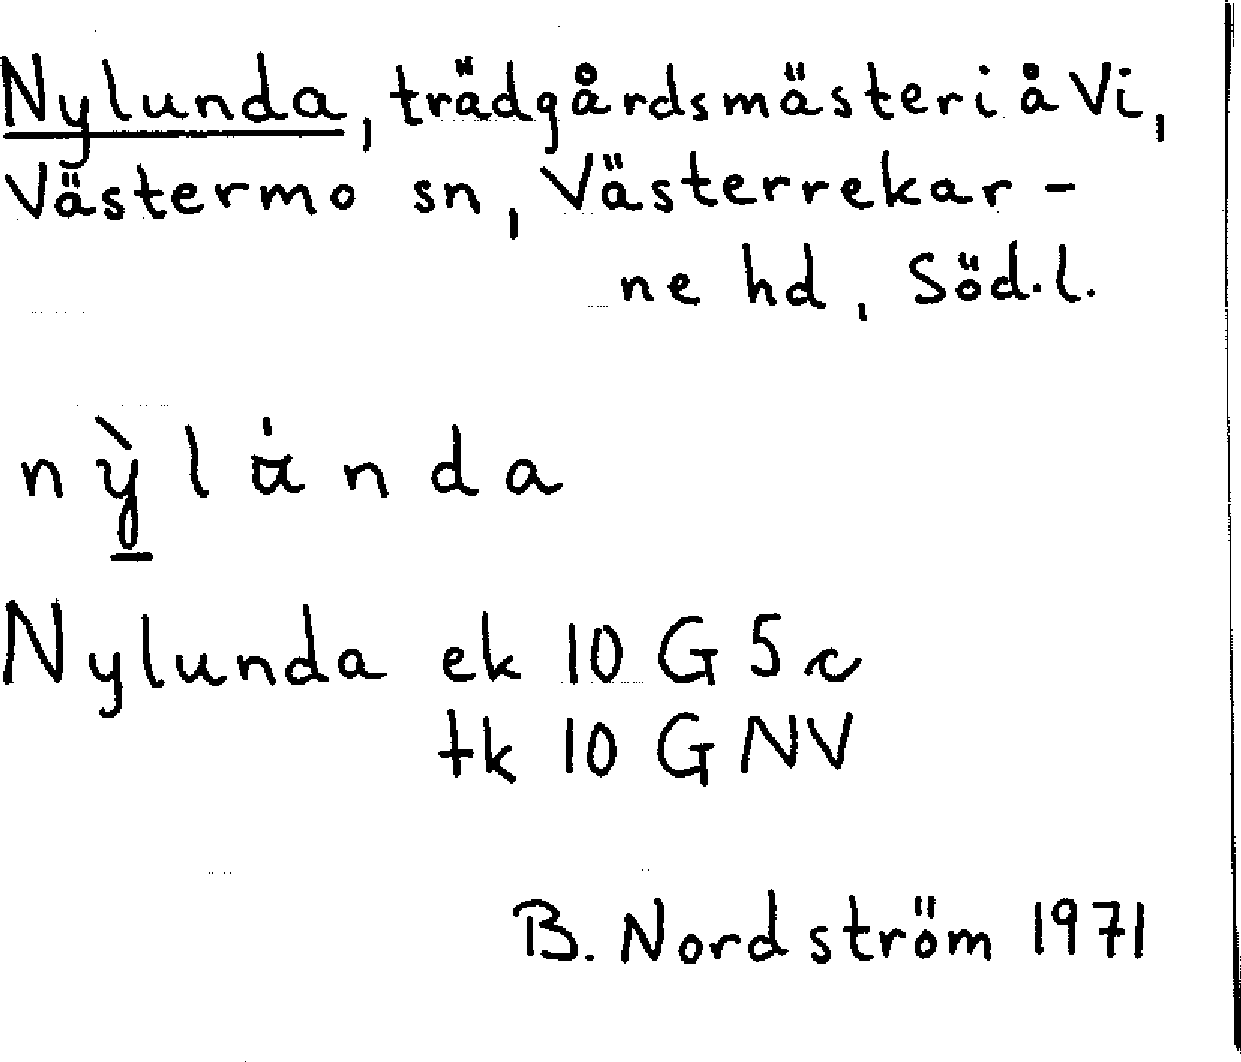 Nylunda, trädgårdsmästeri å Vi,
Västermo sn, Västerrekar-
ne hd, Söd.l.
Nylunda ek 10 G 5 c
tk 10 G NV
B. Nordström 1971